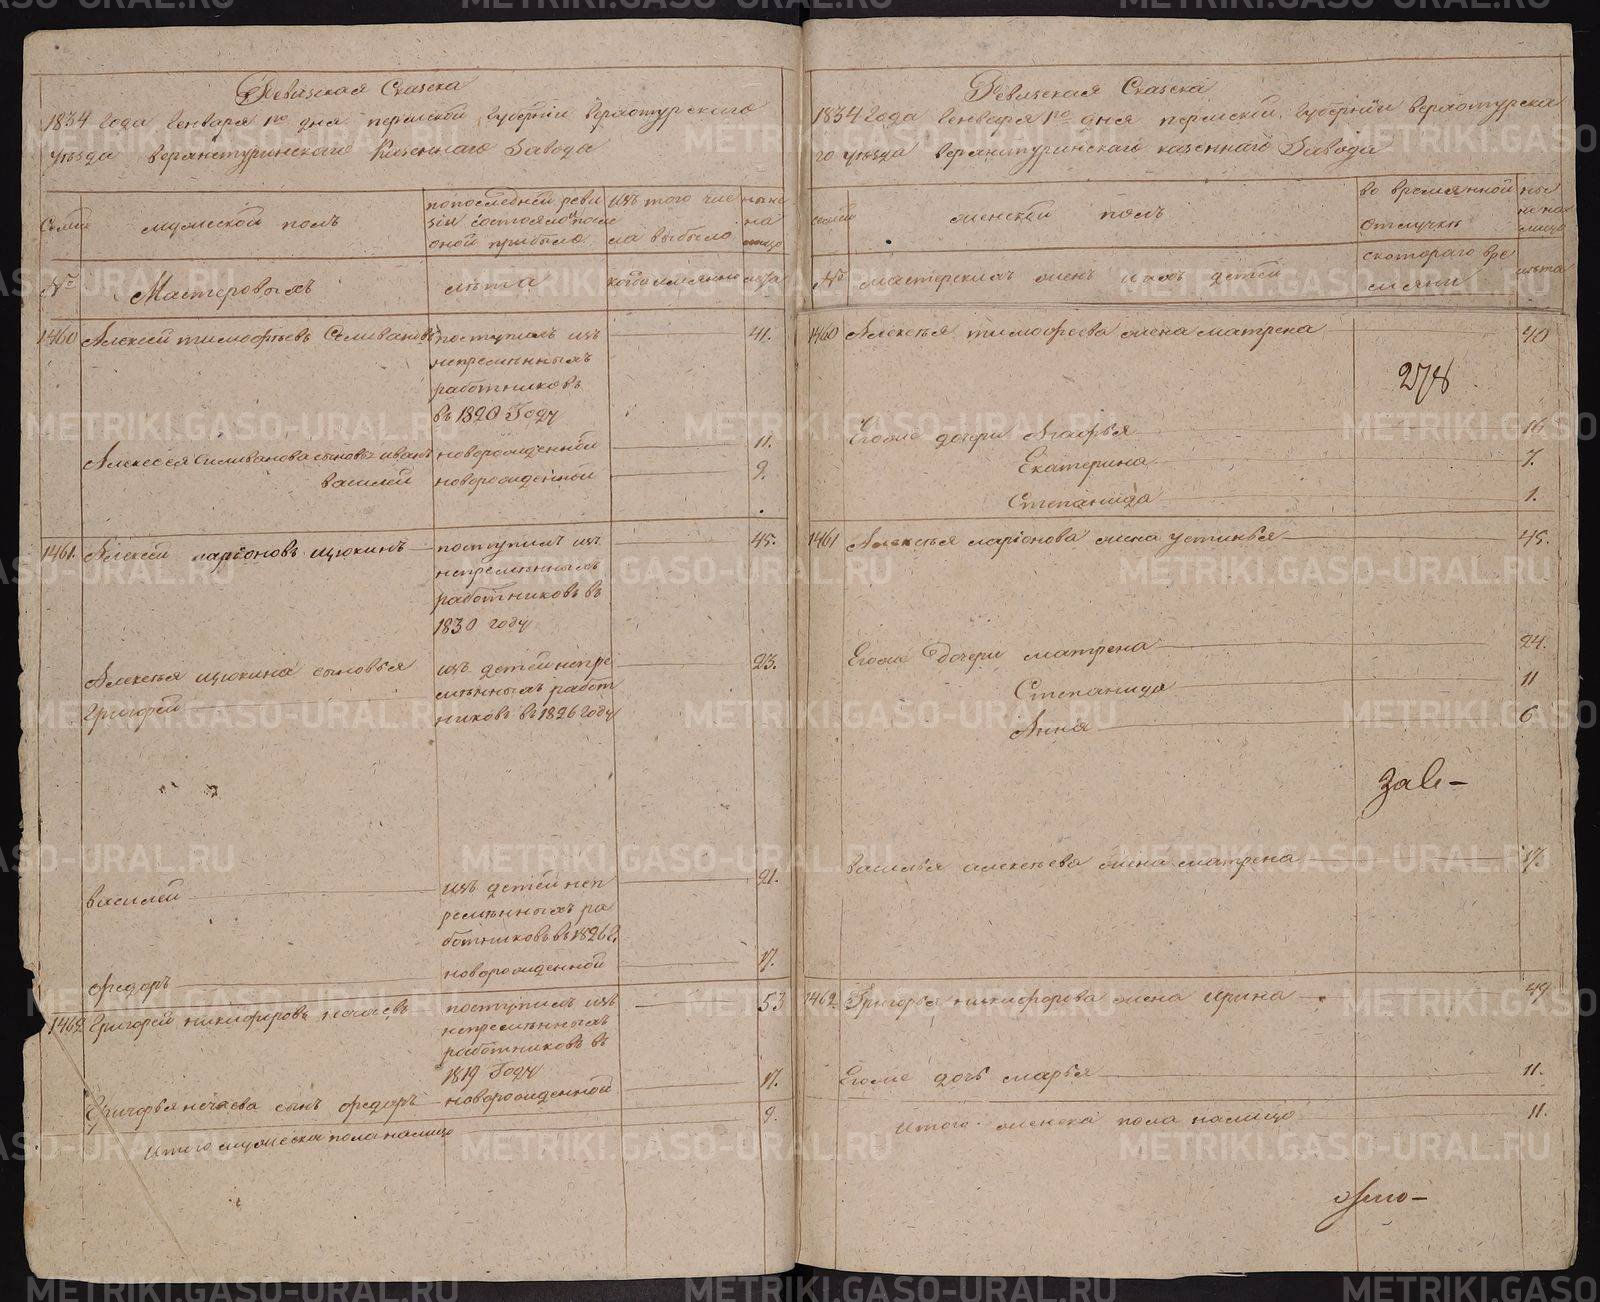 Ревизская Сказка
1834 Года Генваря 1го дня пермской Губернiи Верхотурскаго
уѣзда верхнетуринскаго Казеннаго Завода
Семьи
мужеской полъ
по последней реви
зiи состояло и после
оной прибыло
изъ того чис
ла выбыло
ныне
на
лицо
№
Мастеровыхъ
лѣта
когда имянно
лѣта
1460 Алексей тимофѣевъ Селивановъ поступилъ изъ 41.
непремѣнныхъ
работниковъ
въ 1820 Году
Алексея Селиванова сыновья иванъ новорожденной 11.
василей новорожденной 9.
1461. Алексей ларiоновъ щюкинъ поступилъ изъ 45.
непремѣнныхъ
работниковъ въ
1830 году
Алексѣя щюкина сыновья изъ детей непре 23.
Григорей мѣнныхъ работ
никовъ въ 1826 году
василей изъ детей неп 21.
ремѣнныхъ ра
ботниковъ въ 1826 г.
федоръ новорожденной 17.
1462. Григорей никифоровъ нечаевъ поступилъ изъ 53
непремѣнныхъ
работниковъ въ
1819 Году
Григорья нечаева сынъ федоръ новорожденной 17.
Итого мужеска пола налицо 9.
Ревизская Сказка
1834 Года Генваря 1го дня пермской Губернiи верхотурска
го уѣзда верхнетуринскаго казеннаго Завода
семьи
женской полъ
во временной
отлучкѣ
ны
не на
лицо
№
мастерскихъ женъ и ихъ детей
скотораго вре
мяни
лѣта
1460 Алексѣя тимофеева жена матрена 40
278
Егоже дочери Агафья 16
Екатерина 7.
Степанида 1.
1461 Алексѣя ларiонова жена устинья 45.
Егоже дочери матрена 24.
Степанида 11
Анна 6
василья алексѣева жена матрена 17.
1462. Григорья никифорова жена ирина 49
Егоже дочь марья 11.
итого женска пола налицо 11.
METRIKI.GASO-URAL.RU